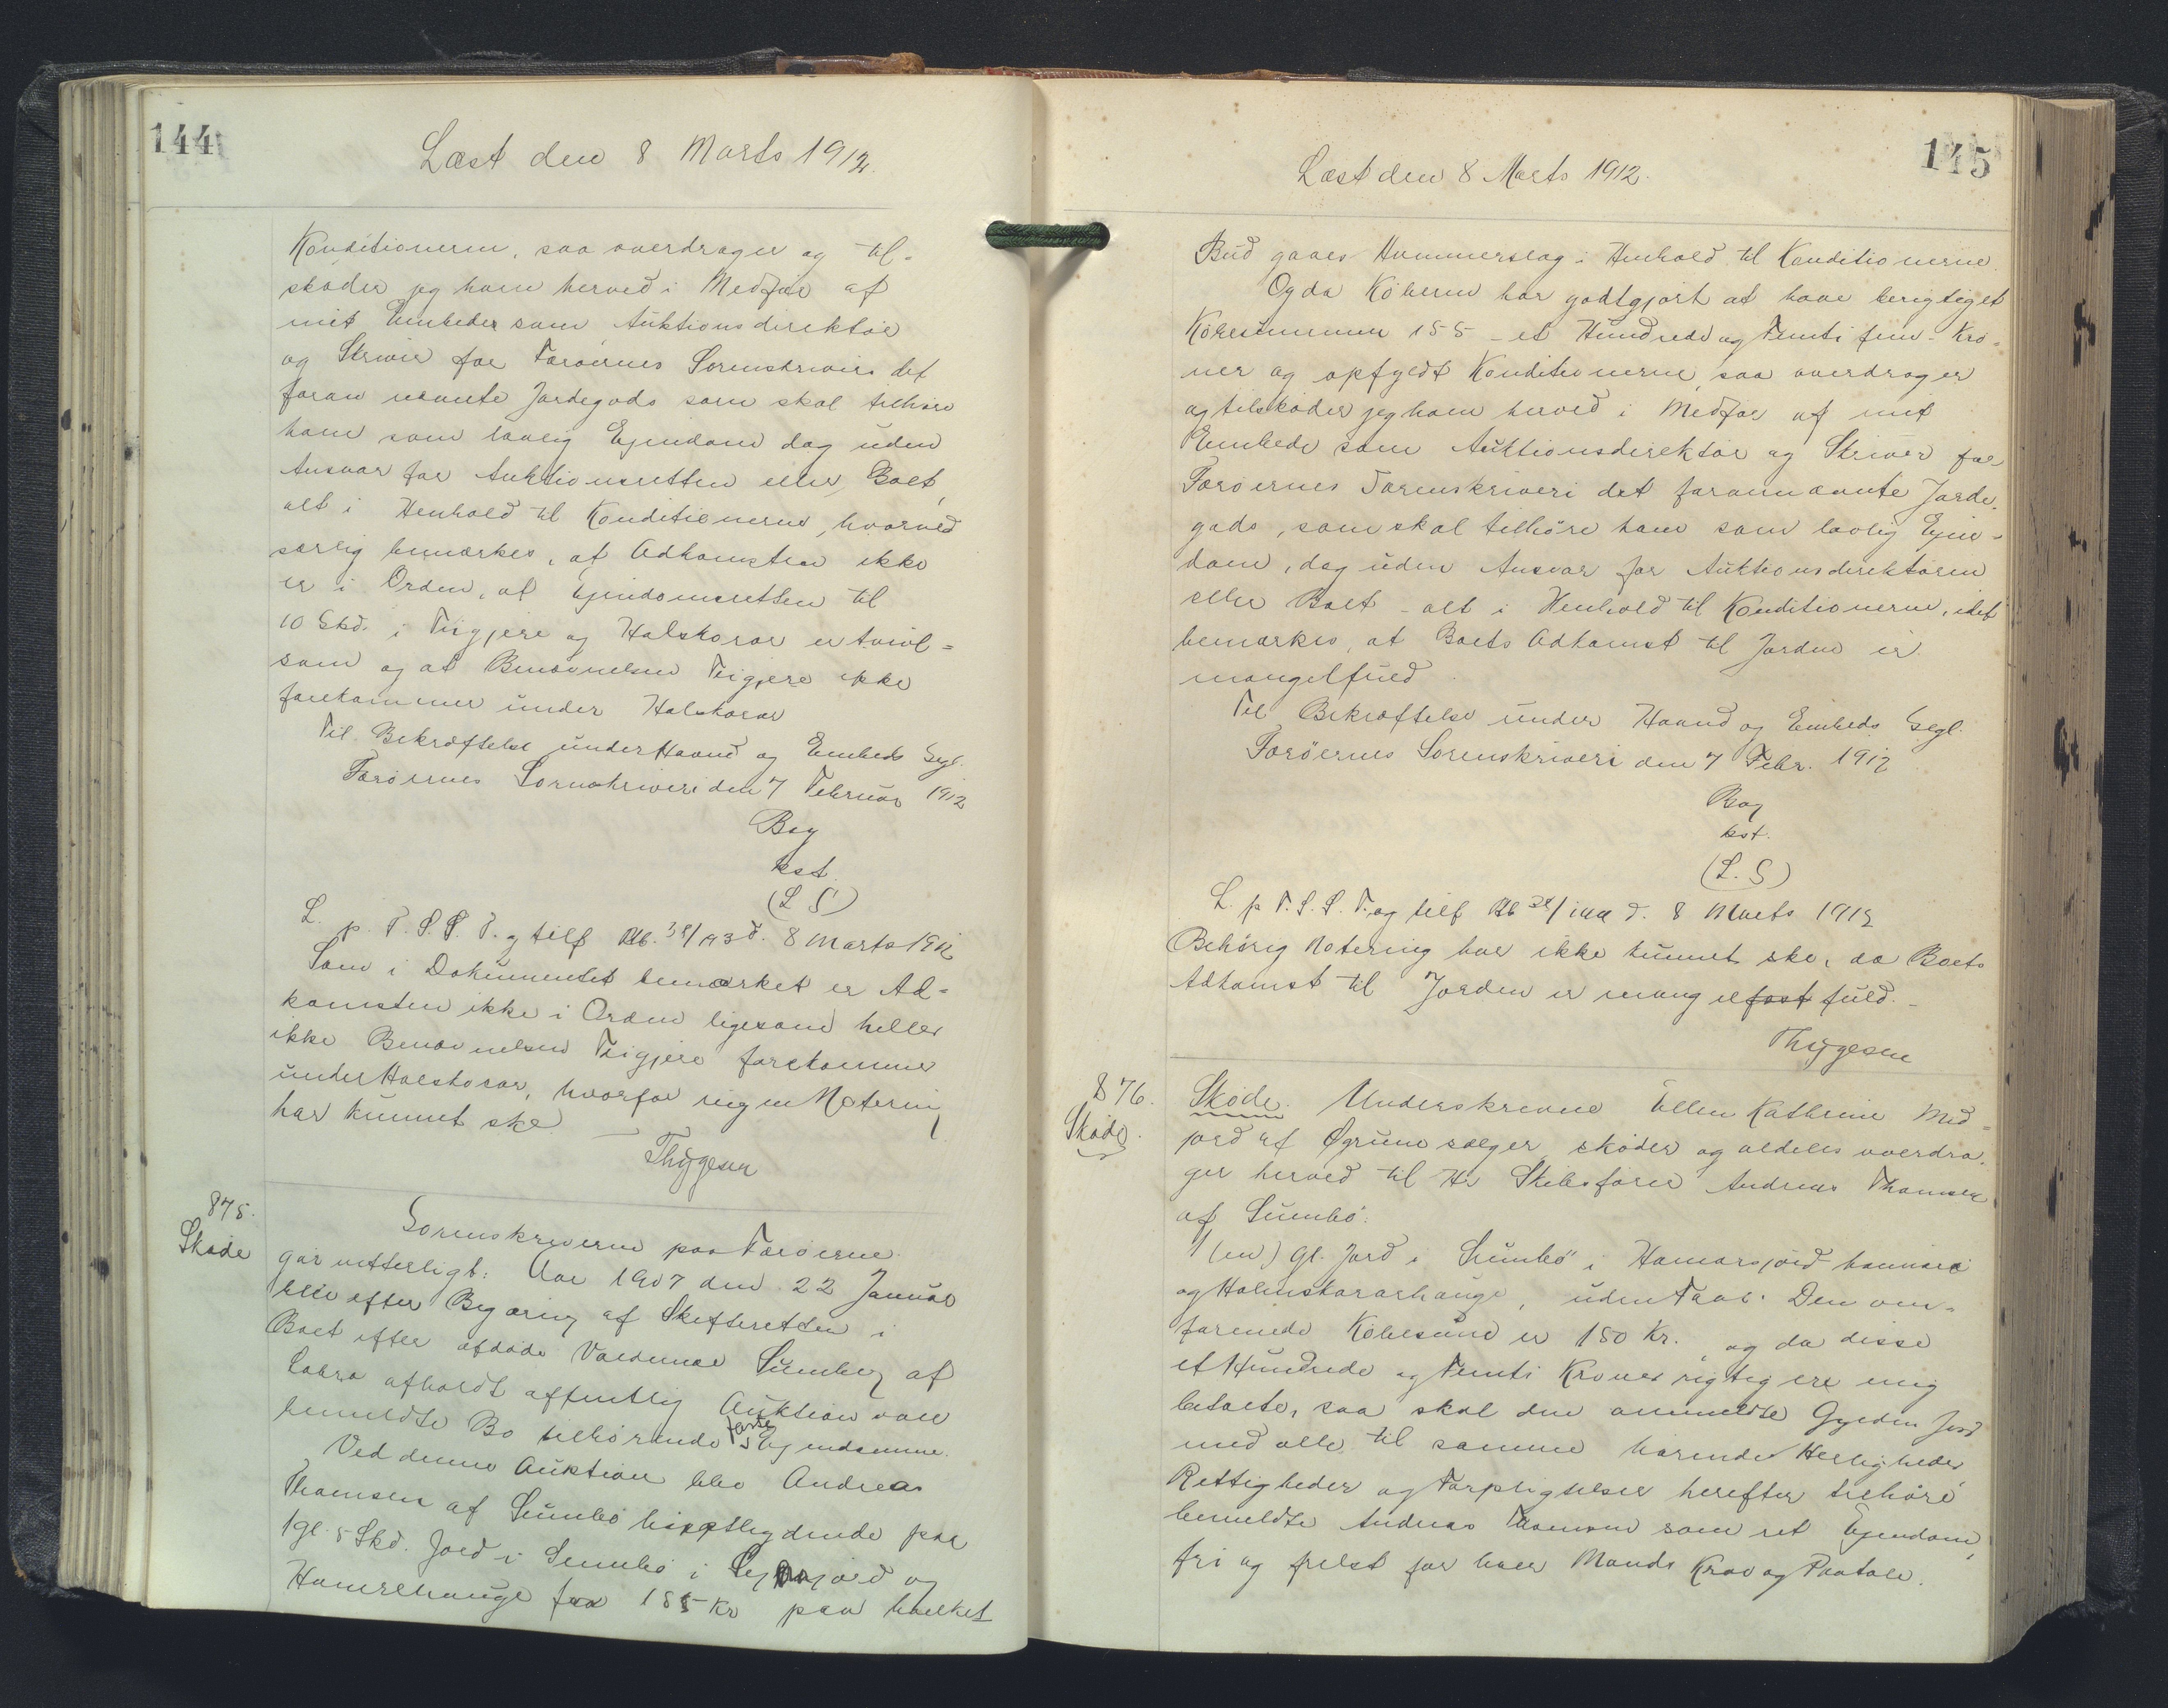 144
Læst den 8 Marts 1912.
Konditionerne, saa overdrager og til-
skøder jeg ham herved i Medfør af
mit Embeder som Auktionsdirektør
og Skriver for Færøernes Sorenskriveri det
foran nævnte Jordegods som skal tilhøre
ham som lovlig Ejendom dog uden
Ansvar for Auktionsretten eller Boet,
alt i Henhold til Konditionerne, hvorved
særlig bemærkes, at Adkomsten ikke
er i Orden, at Ejendomsretten til
10 Skd. i Teigjere og Halskorar er tvivl-
som og at Benævnelsen Teigjere ikke
forekommer under Halskorar
Til Bekræftelse under Haand og Embeds Segl.
Færøernes Sorenskriveri den 7 Februar 1912
Bay
kst.
(L S)
L. p. F. S. S. T. og tilf Rb. d. 8 Marts 1912
Som i Dokumentet bemærket er Ad-
komsten ikke i Orden ligesom heller
ikke Benævnelsen Teigjere forekommer
under Halskorar, hvorfor ingen Notering
har kunnet ske. —
Thygesen
875.
Skøde
Sorenskriveren paa Færøerne
gør vitterligt: Aar 1907 den 22 Januar
blev efter Begæring af Skifteretten i
Boet efter afdøde Valdemar Sumberg af
Lobra afholdt offentlig Auktion over
bemeldte Bo tilhørende faste Ejendomme.
Ved denne Auktion blev Andreas
Thomsen af Sumbø højstbydende paa
1 gl. 5 Skd. Jord i Sumbø i og
Hamrehauge for 155 Kr paa hvilket
145
Læst den 8 Marts 1912.
Bud gaves Hammerslag i Henhold til Konditionerne.
Og da Køberen har godtgjort at have berigtiget
Købesummen 155 - et Hundrede og Femti fem - Kro-
ner og opfyldt Konditionerne, saa overdrager
og tilskøder jeg ham herved i Medfør af mit
Embede som Auktionsdirektør og Skriver for
Færøernes Sorenskriveri det forannævnte Jorde-
gods, som skal tilhøre ham som lovlig Ejen-
dom, dog uden Ansvar for Auktionsdirektøren
eller Boet - alt i Henhold til Konditionerne, idet
bemærkes, at Boets Adkomst til Jorden er
mangelfuld.
Til Bekræftelse under Haand og Embeds Segl.
Færöernes Sorenskriveri den 7 Febr. 1912
Bay
kst.
(L. S)
L. p F. S. S. T. og tilf Rb d. 8 Marts 1912
Behörig Notering har ikke kunnet ske, da Boets
Adkomst til Jorden er mangelfuld. -
Thygesen
876.
Skøde.
Skøde. Underskrevne Ellen Kathrine Mid-
jord af Øgrum sælger skøder og aldeles overdra-
ger herved til Hr Skibsfører Andreas Thomsen
af Sumbö:
1 (en) gl. Jord i Sumbö i
og Holmskorarhauge, uden Faar. Den om-
førenede Købesum er 150 Kr., og da disse
et Hundrede og Femti Kroner rigtig ere mig
betalte, saa skal den ommeldte Gylden Jord
med alle til samme hørende Herligheder,
Rettigheder og Forpligtelser herefter tilhøre
bemeldte Andreas Thomsen som ret Ejendom,
fri og frelst for hver Mands Krav og Paatale.